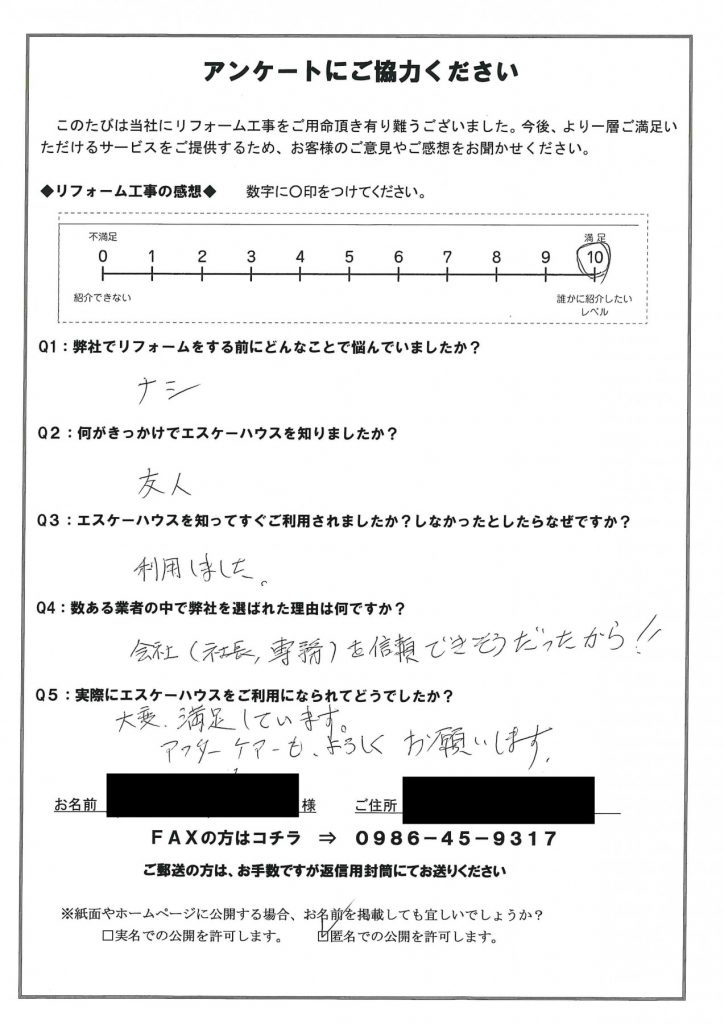 アンケートにご協力ください
このたびは当社にリフォーム工事をご用命頂き有り難うございました。今後、より一層ご満足い
ただけるサービスをご提供するため、お客様のご意見やご感想をお聞かせください。
◆リフォーム工事の感想◆　数字に〇印をつけてください。
不満足　満足
0 1 2 3 4 5 6 7 8 9 10
紹介できない　誰かに紹介したい
レベル
Q1：弊社でリフォームをする前にどんなことで悩んでいましたか？
ナシ
Q2：何がきっかけでエスケーハウスを知りましたか？
友人
Q3：エスケーハウスを知ってすぐご利用されましたか？しなかったとしたらなぜですか？
利用しました。
Q4：数ある業者の中で弊社を選ばれた理由は何ですか？
会社（社長,専務）を信頼できそうだったから!!
Q5：実際にエスケーハウスをご利用になられてどうでしたか？
大変、満足しています。
アフターケアーも、よろしくお願いします。
お名前　様　ご住所
FAXの方はコチラ　⇒　0986－45－9317
ご郵送の方は、お手数ですが返信用封筒にてお送りください
※紙面やホームページに公開する場合、お名前を掲載しても宜しいでしょうか？
□実名での公開を許可します。　☑匿名での公開を許可します。